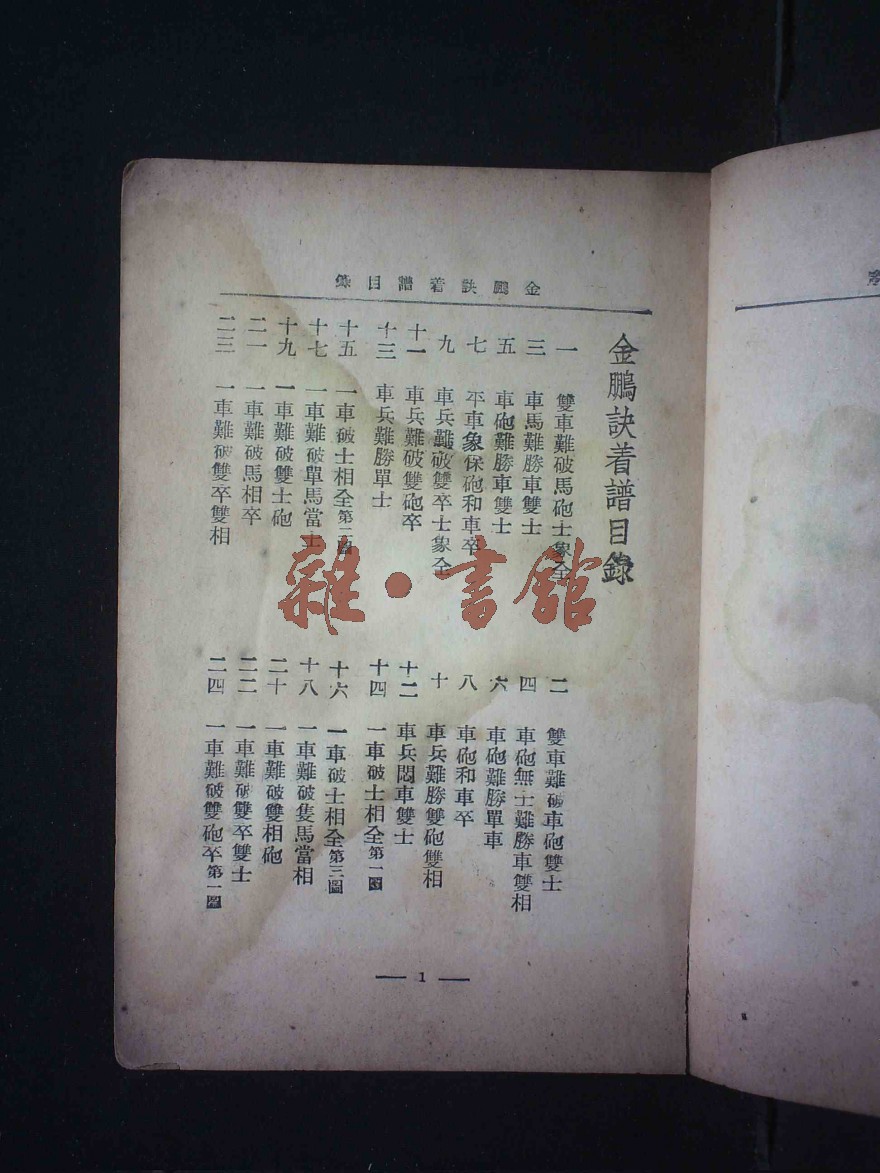 金鵬訣着譜目錄
金鵬訣着譜目錄
一 雙車難破馬砲士象全
二 雙車難破車砲雙士
三 車馬難勝車雙士
四 車砲無士難勝車雙相
五 車砲難勝車雙士
六 車砲難勝單車
七 平車象保砲和車卒
八 車砲和車卒
九 車兵難破雙卒士象全
十 車兵難勝雙砲雙相
十一 車兵難破雙砲卒
十二 車兵悶車雙士
十三 車兵難勝單士
十四 一車破士相全第一圖
十五 一車破士相全第二圖
十六 一車破士相全第三圖
十七 一車難破單馬當士
十八 一車難破隻馬當相
十九 一車難破雙士砲
二十 一車難破雙相砲
二一 一車難破馬相卒
二二 一車難破雙卒雙士
二三 一車難破雙卒雙相
二四 一車難破雙砲卒第一圖
— 1 —
雜·書館